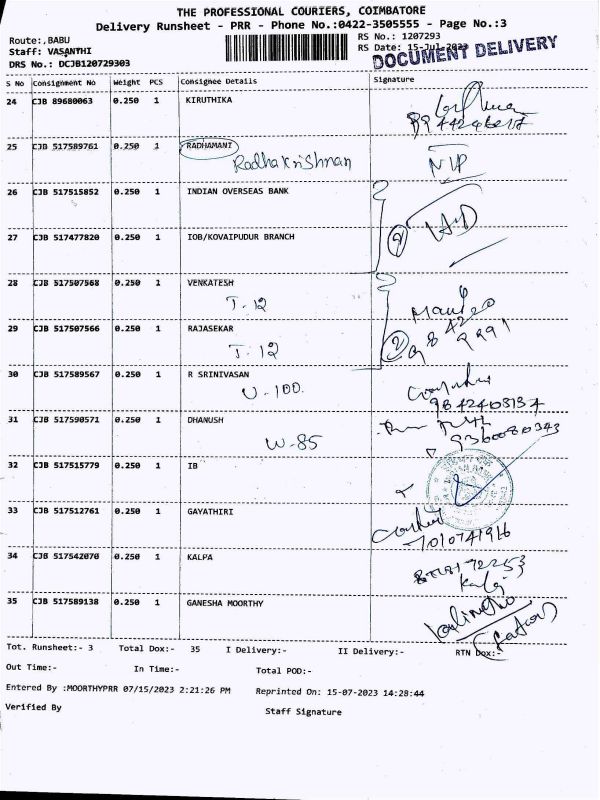 THE PROFESSIONAL COURIERS, COIMBATORE
Delivery Runsheet - PRR - Phone No.:0422-3505555 - Page No.:3
Route:,BABU RS No.: 1207293
Staff: VASANTHI RS Date: 15-Jul-2023
DOCUMENT DELIVERY
DRS No.: DCJB120729303
S No Consignment No Weight PCS Consignee Details Signature
24 CJB 89680063 0.250 1 KIRUTHIKA
25 CJB 517589761 0.250 1 RADHAMANI
Radhakrishnan
26 CJB 517515852 0.250 1 INDIAN OVERSEAS BANK
27 CJB 517477820 0.250 1 IOB/KOVAIPUDUR BRANCH
2
28 CJB 517507568 0.250 1 VENKATESH
T-12
29 CJB 517507566 0.250 1 RAJASEKAR
T-12
2
30 CJB 517589567 0.250 1 R SRINIVASAN
U-100
31 CJB 517590571 0.250 1 DHANUSH
W-85 9360080343
32 CJB 517515779 0.250 1 IB
33 CJB 517512761 0.250 1 GAYATHIRI
7010741916
34 CJB 517542070 0.250 1 KALPA
35 CJB 517589138 0.250 1 GANESHA MOORTHY
Tot. Runsheet:- 3 Total Dox:- 35 I Delivery:- II Delivery:- RTN Dox:-
Out Time:- In Time:- Total POD:-
Entered By :MOORTHYPRR 07/15/2023 2:21:26 PM Reprinted On: 15-07-2023 14:28:44
Verified By Staff Signature